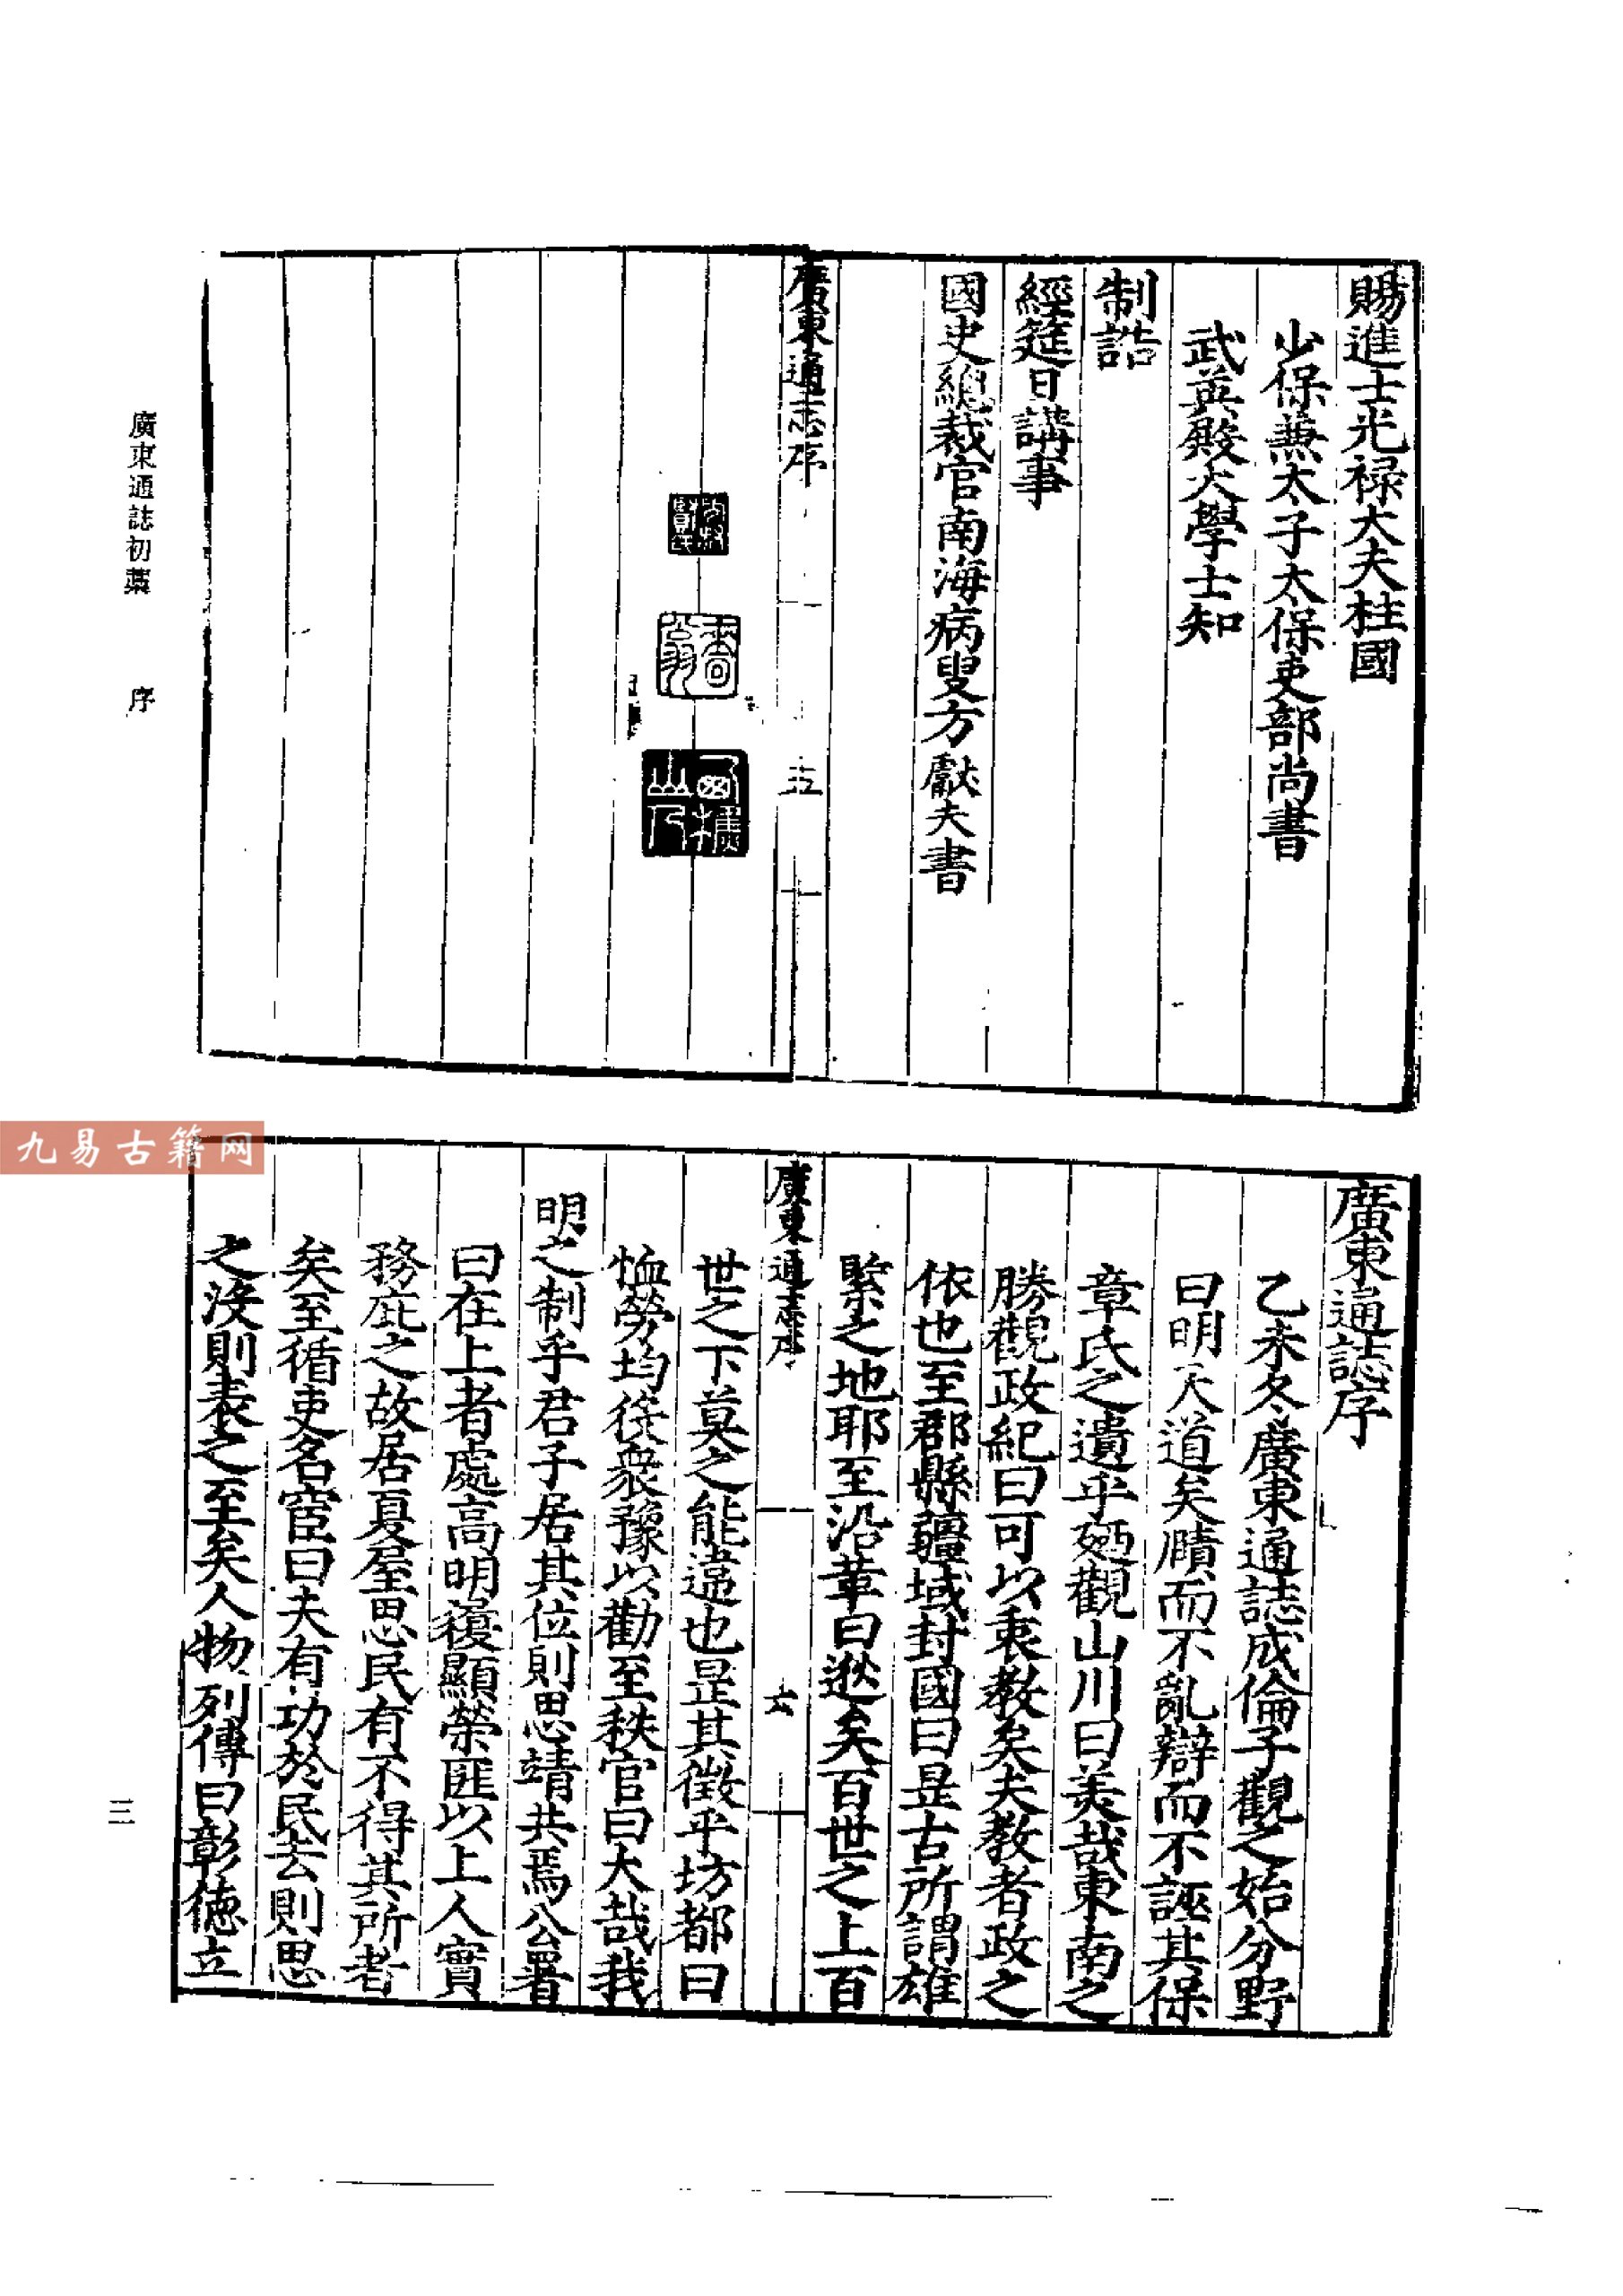 賜進士光禄大夫柱國
少保兼太子太保吏部尚書
武英殿大學士知
制誥
經筵日講事
國史總裁官南海病叟方獻夫書
廣東通志序
五
廣東通誌初藁
序
廣東通誌序
乙未冬廣東通誌成倫子觀之始分野
曰明天道矣賾而不亂辯而不誣其保
章氏之遺乎廼觀山川曰美哉東南之
勝觀政紀曰可以衷教矣夫教者政之
依也至郡縣疆域封國曰是古所謂雄
繄之地耶至沿革曰逖矣百世之上百
廣東通志序
六
世之下莫之能違也是其徵乎坊都曰
恤勞均徭衆豫以勸至秩官曰大哉我
明之制乎君子居其位則思靖共焉公署
曰在上者處高明履顯榮匪以上人實
務庇之故居夏屋思民有不得其所者
矣至循吏名宦曰夫有功於民去則思
之沒則表之至矣人物列傳曰彰德立
三
九易古籍网